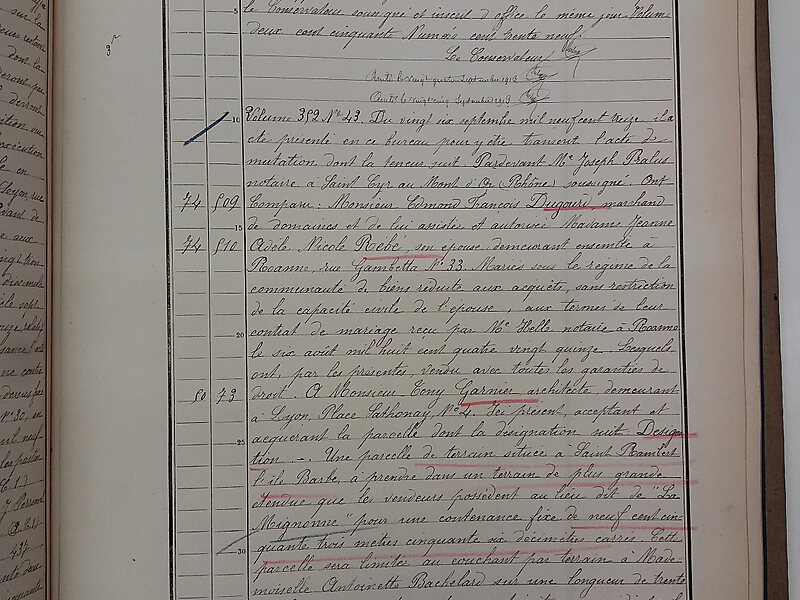 le Conservateur soussigné et inscrit d'office le même jour Volume
deux cent cinquante Numéro cent trente neuf.
Le Conservateur
Arrêté le vingt quatre Septembre 1913
Arrêté le vingt cinq Septembre 1913
10 Volume 352 N° 43. Du vingt six septembre mil neuf cent treize il a
été présenté en ce bureau pour y être transcrit l'acte de
mutation dont la teneur suit. Pardevant Me Joseph Pralus
notaire à Saint Cyr au Mont d'Or (Rhône) soussigné. Ont
74 509 Comparu: Monsieur Edmond François Dugourd, marchand
15 de domaines et de lui assistée et autorisée Madame Jeanne
74 510 Adèle Nicole Rebe, son épouse demeurant ensemble à
Roanne rue Gambetta N° 33. Mariés sous le régime de la
communauté de biens réduite aux acquêts, sans restriction
de la capacité civile de l'épouse, aux termes de leur
20 contrat de mariage reçu par Me Helle notaire à Roanne
le six août mil huit cent quatre vingt quinze. Lesquels
ont, par les présentes, vendu avec toutes les garanties de
50 73 droit. A Monsieur Tony Garnier architecte, demeurant
à Lyon, Place Sathonay, N° 4. Ici présent, acceptant et
25 acquérant la parcelle dont la désignation suit. Désigna
tion -. Une parcelle de terrain située à Saint Rambert
l'île Barbe, à prendre dans un terrain de plus grande
étendue que les vendeurs possèdent au lieu dit de "La
Mignonne" pour une contenance fixe de neuf cent cin
30 quante trois mètres cinquante six décimètres carrés. Cette
parcelle sera limitée au couchant par terrain à Made
moiselle Antoinette Bachelard sur une longueur de trente